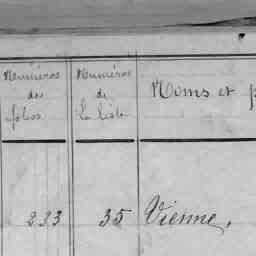 Numéros des folios
Numéros de la liste
Noms et p
233 35 Vienne,